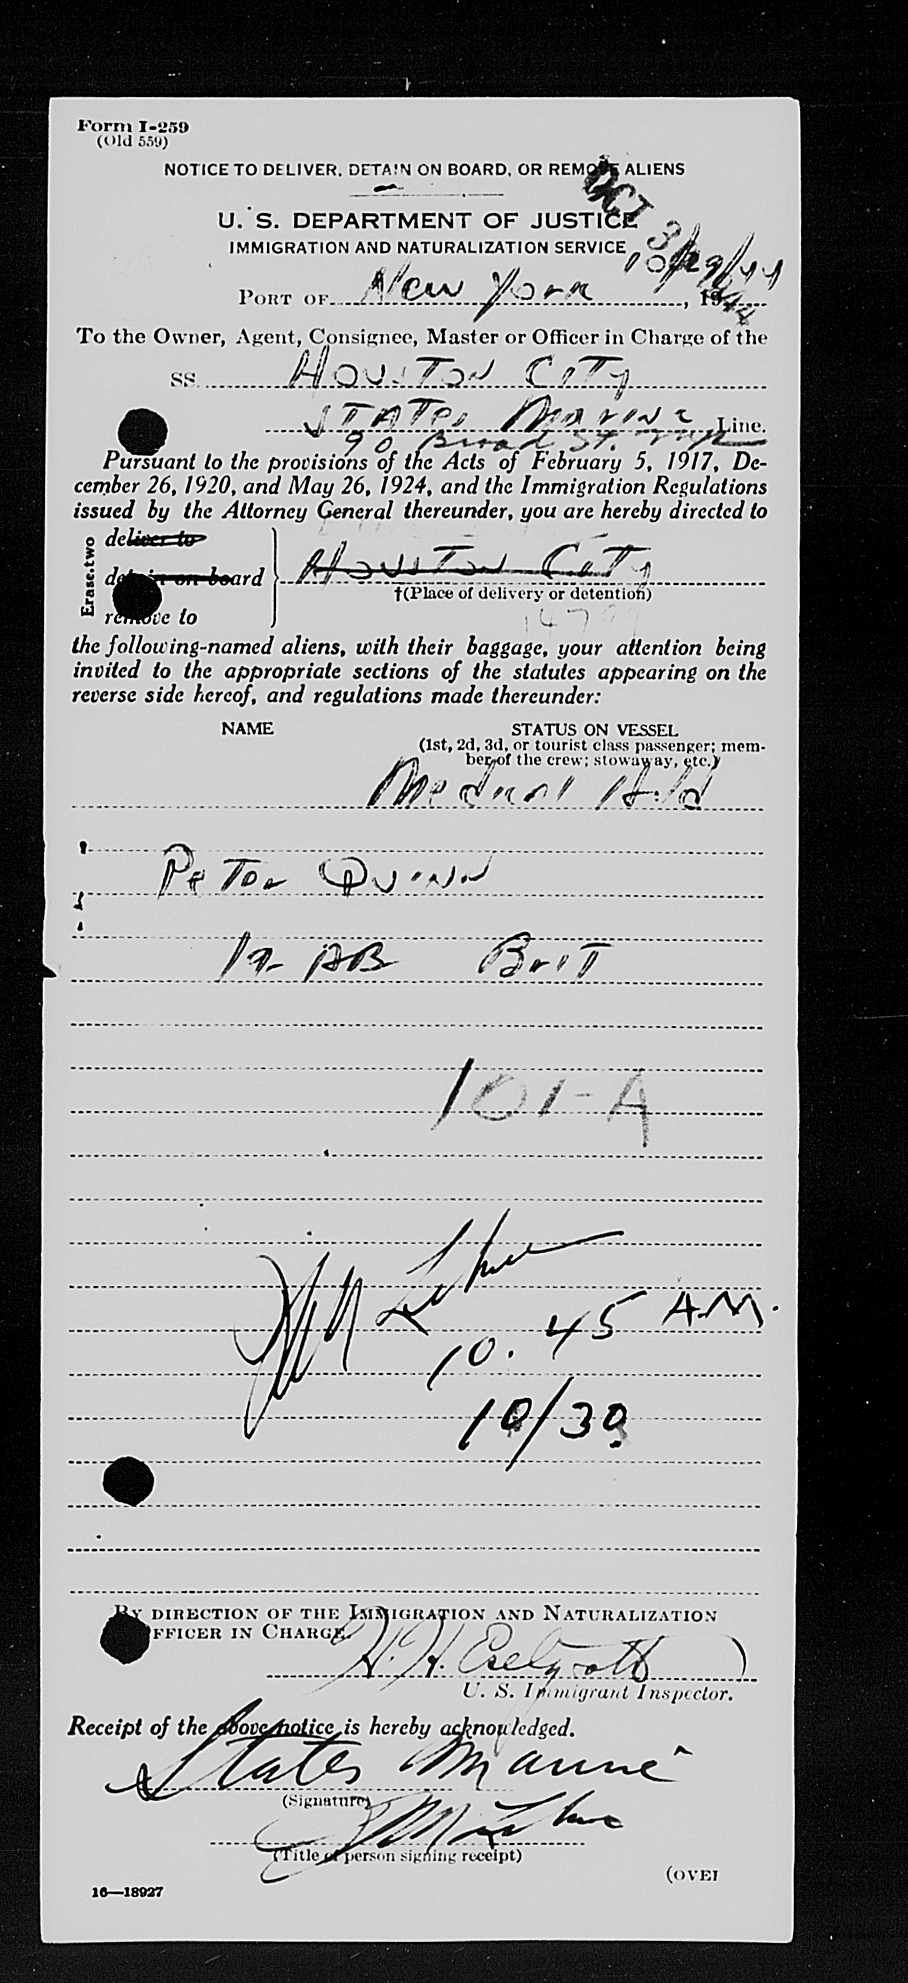 Form I-259
(Old 559)
NOTICE TO DELIVER, DETAIN ON BOARD, OR REMOVE ALIENS
OCT 30 1944
U. S. DEPARTMENT OF JUSTICE
IMMIGRATION AND NATURALIZATION SERVICE
10/29/44
PORT OF New York, 19
To the Owner, Agent, Consignee, Master or Officer in Charge of the
SS. Houston City
States Marine Line.
90 Broad St. NYC
Pursuant to the provisions of the Acts of February 5, 1917, De-
cember 26, 1920, and May 26, 1924, and the Immigration Regulations
issued by the Attorney General thereunder, you are hereby directed to
Erase two
deliver to
detain on board Houston City
†(Place of delivery or detention)
remove to
the following-named aliens, with their baggage, your attention being
invited to the appropriate sections of the statutes appearing on the
reverse side hereof, and regulations made thereunder:
NAME STATUS ON VESSEL
(1st, 2d, 3d, or tourist class passenger; mem-
ber of the crew; stowaway, etc.)
Medical Hold
Peter Quinn
19 AB Brit
101-A
10.45 A.M.
10/30
BY DIRECTION OF THE IMMIGRATION AND NATURALIZATION
OFFICER IN CHARGE.
H. H.
U. S. Immigrant Inspector.
Receipt of the above notice is hereby acknowledged.
States Marine
(Signature)
(Title of person signing receipt)
(OVER
16—18927